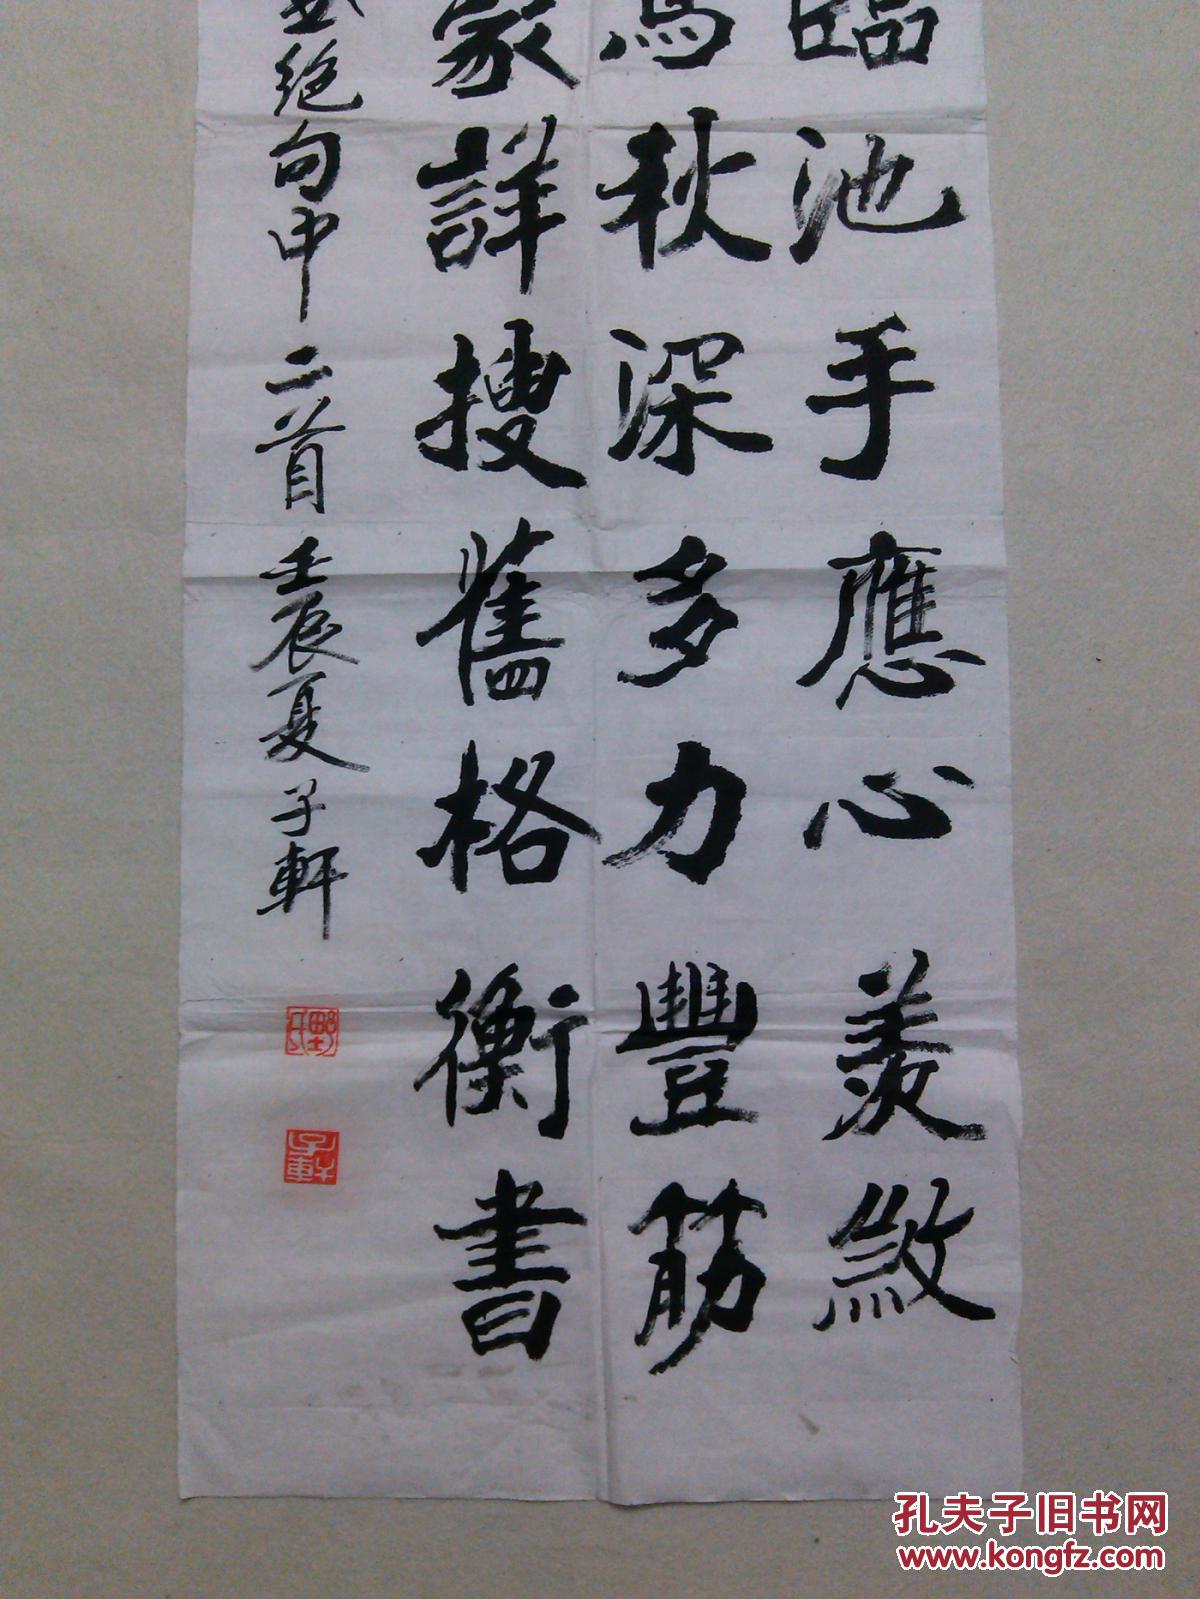 臨池手應心羨煞
秋深多力豐筋
家詳搜舊格衡書
絕句中二首壬辰夏子軒
子軒
孔夫子旧书网
www.kongfz.com